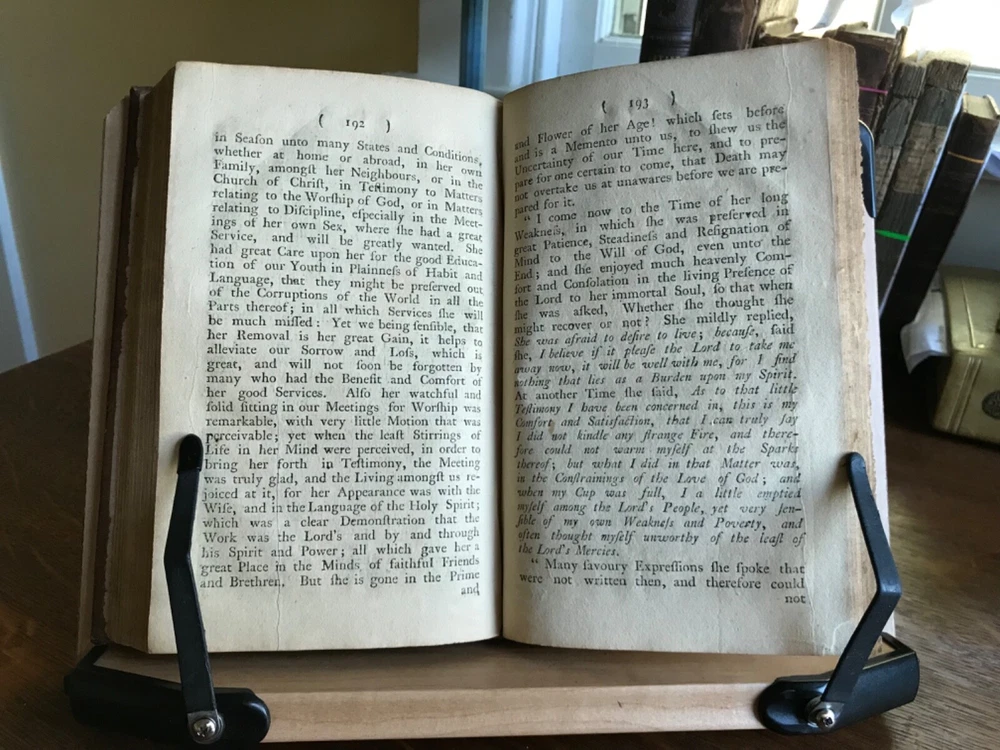 ( 192 )
in Seaſon unto many States and Conditions,
whether at home or abroad, in her own
Family, amongſt her Neighbours, or in the
Church of Chriſt, in Teſtimony to Matters
relating to the Worſhip of God, or in Matters
relating to Diſcipline, eſpecially in the Meet-
ings of her own Sex, where ſhe had a great
Service, and will be greatly wanted. She
had great Care upon her for the good Educa-
tion of our Youth in Plainneſs of Habit and
Language, that they might be preſerved out
of the Corruptions of the World in all the
Parts thereof; in all which Services ſhe will
be much miſſed: Yet we being ſenſible, that
her Removal is her great Gain, it helps to
alleviate our Sorrow and Loſs, which is
great, and will not ſoon be forgotten by
many who had the Benefit and Comfort of
her good Services. Alſo her watchful and
ſolid ſitting in our Meetings for Worſhip was
remarkable, with very little Motion that was
perceivable; yet when the leaſt Stirrings of
Life in her Mind were perceived, in order to
bring her forth in Teſtimony, the Meeting
was truly glad, and the Living amongſt us re-
joiced at it, for her Appearance was with the
Wiſe, and in the Language of the Holy Spirit;
which was a clear Demonſtration that the
Work was the Lord's and by and through
his Spirit and Power; all which gave her a
great Place in the Minds of faithful Friends
and Brethren. But ſhe is gone in the Prime
and
( 193 )
and Flower of her Age! which ſets before
and is a Memento unto us, to ſhew us the
Uncertainty of our Time here, and to pre-
pare for one certain to come, that Death may
not overtake us at unawares before we are pre-
pared for it.
“ I come now to the Time of her long
Weakneſs, in which ſhe was preſerved in
great Patience, Steadineſs and Reſignation of
Mind to the Will of God, even unto the
End; and ſhe enjoyed much heavenly Com-
fort and Conſolation in the living Preſence of
the Lord to her immortal Soul, ſo that when
ſhe was aſked, Whether ſhe thought ſhe
might recover or not? She mildly replied,
She was afraid to deſire to live; becauſe, ſaid
ſhe, I believe if it pleaſe the Lord to take me
away now, it will be well with me, for I find
nothing that lies as a Burden upon my Spirit.
At another Time ſhe ſaid, As to that little
Teſtimony I have been concerned in, this is my
Comfort and Satisfaction, that I can truly ſay
I did not kindle any ſtrange Fire, and there-
fore could not warm myſelf at the Sparks
thereof; but what I did in that Matter was,
in the Conſtrainings of the Love of God; and
when my Cup was full, I a little emptied
myſelf among the Lord's People, yet very ſen-
ſible of my own Weakneſs and Poverty, and
often thought myſelf unworthy of the leaſt of
the Lord's Mercies.
“ Many ſavoury Expreſſions ſhe ſpoke that
were not written then, and therefore could
not